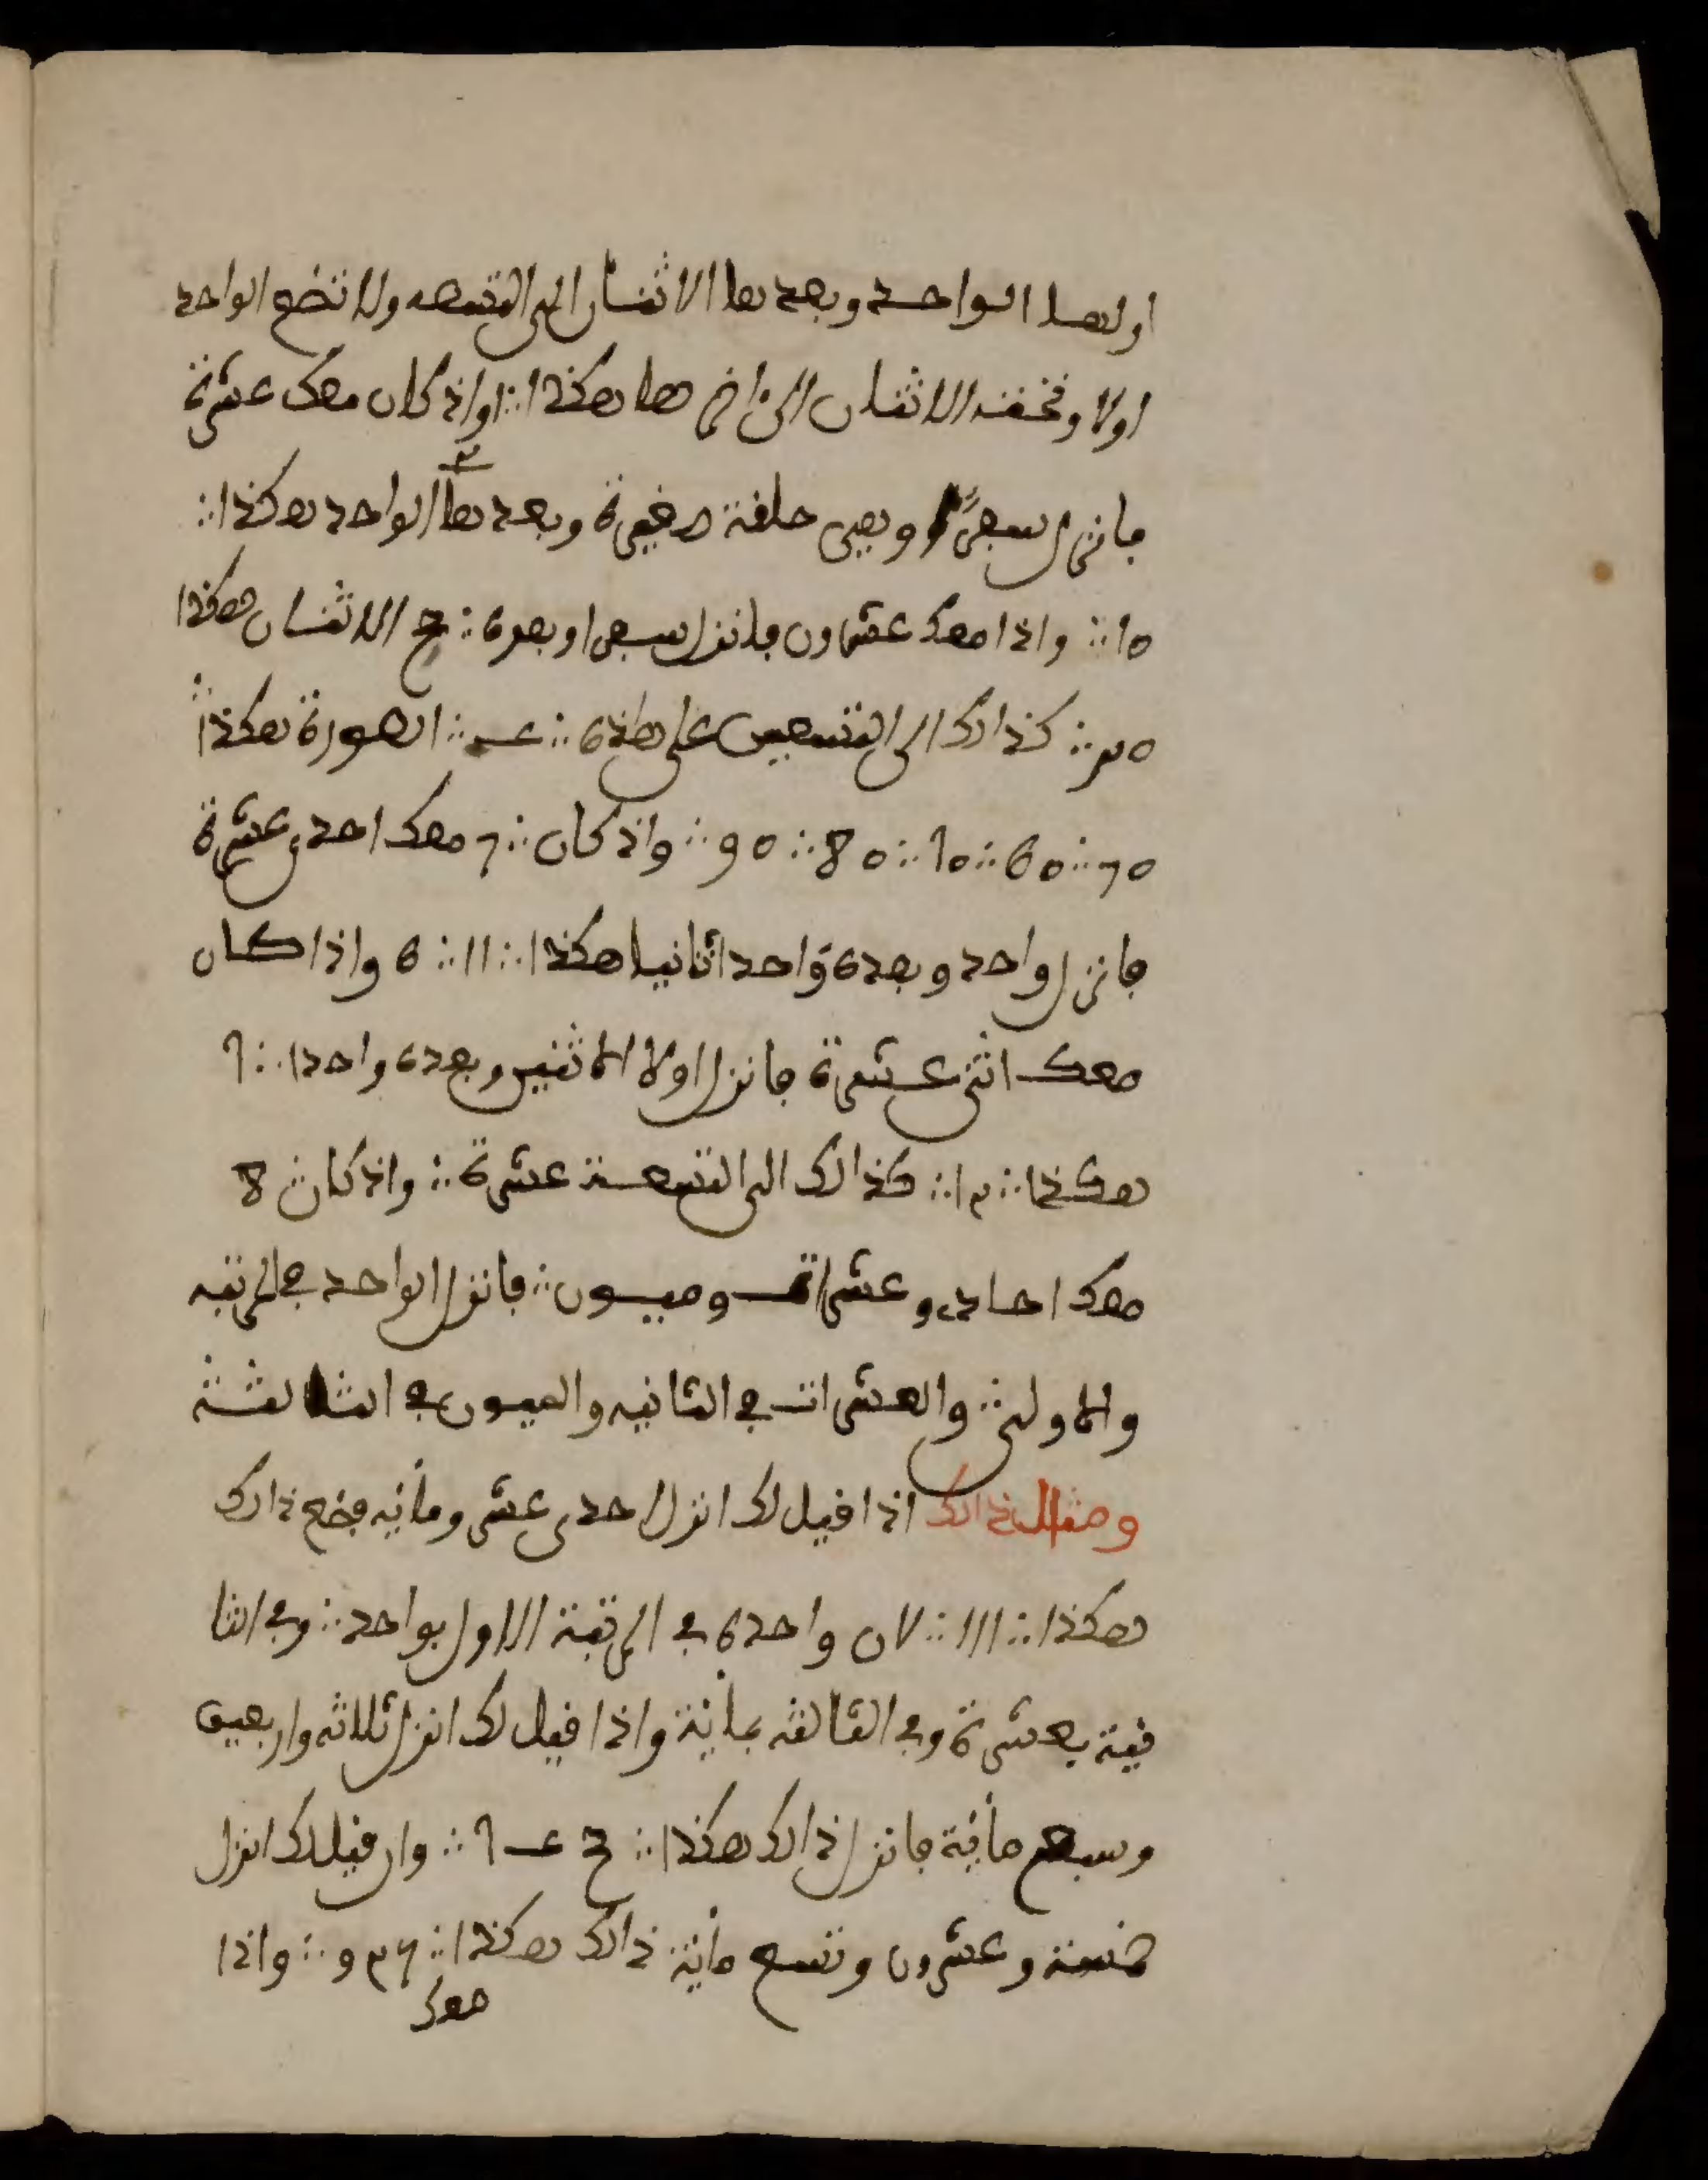 اولها الواحد وبعدها الاثنان الى التسعه ولا تضع الواحد
اولا وتحته الاثنان الى اخرها هكذا ∴ واذ كان معك عشرة
فانزل سفرا وهي حلقة صغيرة وبعدها الواحد هكذا ∴
01 ∴ واذا معك عشرون فانزل سفرا وبعده ∴ الاثنان هكذا
02 ∴ كذالك الى التسعين على هاذه ∴ الصورة هكذا
07 ∴ 06 ∴ 01 ∴ 08 ∴ 09 ∴ واذ كان ∴ 7 معك احدى عشرة
فانزل واحد وبعده واحدا ثانيا هكذا ∴ 11 ∴ 6 واذا كان
معك اثنى عشرة فانزل اولا الاثنين وبعده واحدا ∴ 1
هكذا ∴ 21 ∴ كذالك الى التسعة عشرة ∴ واذ كان 8
معك احاد وعشرات وميون ∴ فانزل الواحد في المرتبه
والاولى ∴ والعشرات في الثانيه والميون في الثالثة
ومثال ذالك اذا قيل لك انزل احدى عشر ومائه فضع ذالك
هكذا ∴ 111 ∴ لان واحدة في المرتبة الاول بواحد ∴ وفي الثا
نية بعشرة وفي الثالثه بمائة واذا قيل لك انزل ثلاثه واربعين
وسبع مائة فانزل ذالك هكذا ∴ وان قيل لك انزل
خمسة وعشرون وتسع مائة ذالك هكذا ∴ واذا
معك